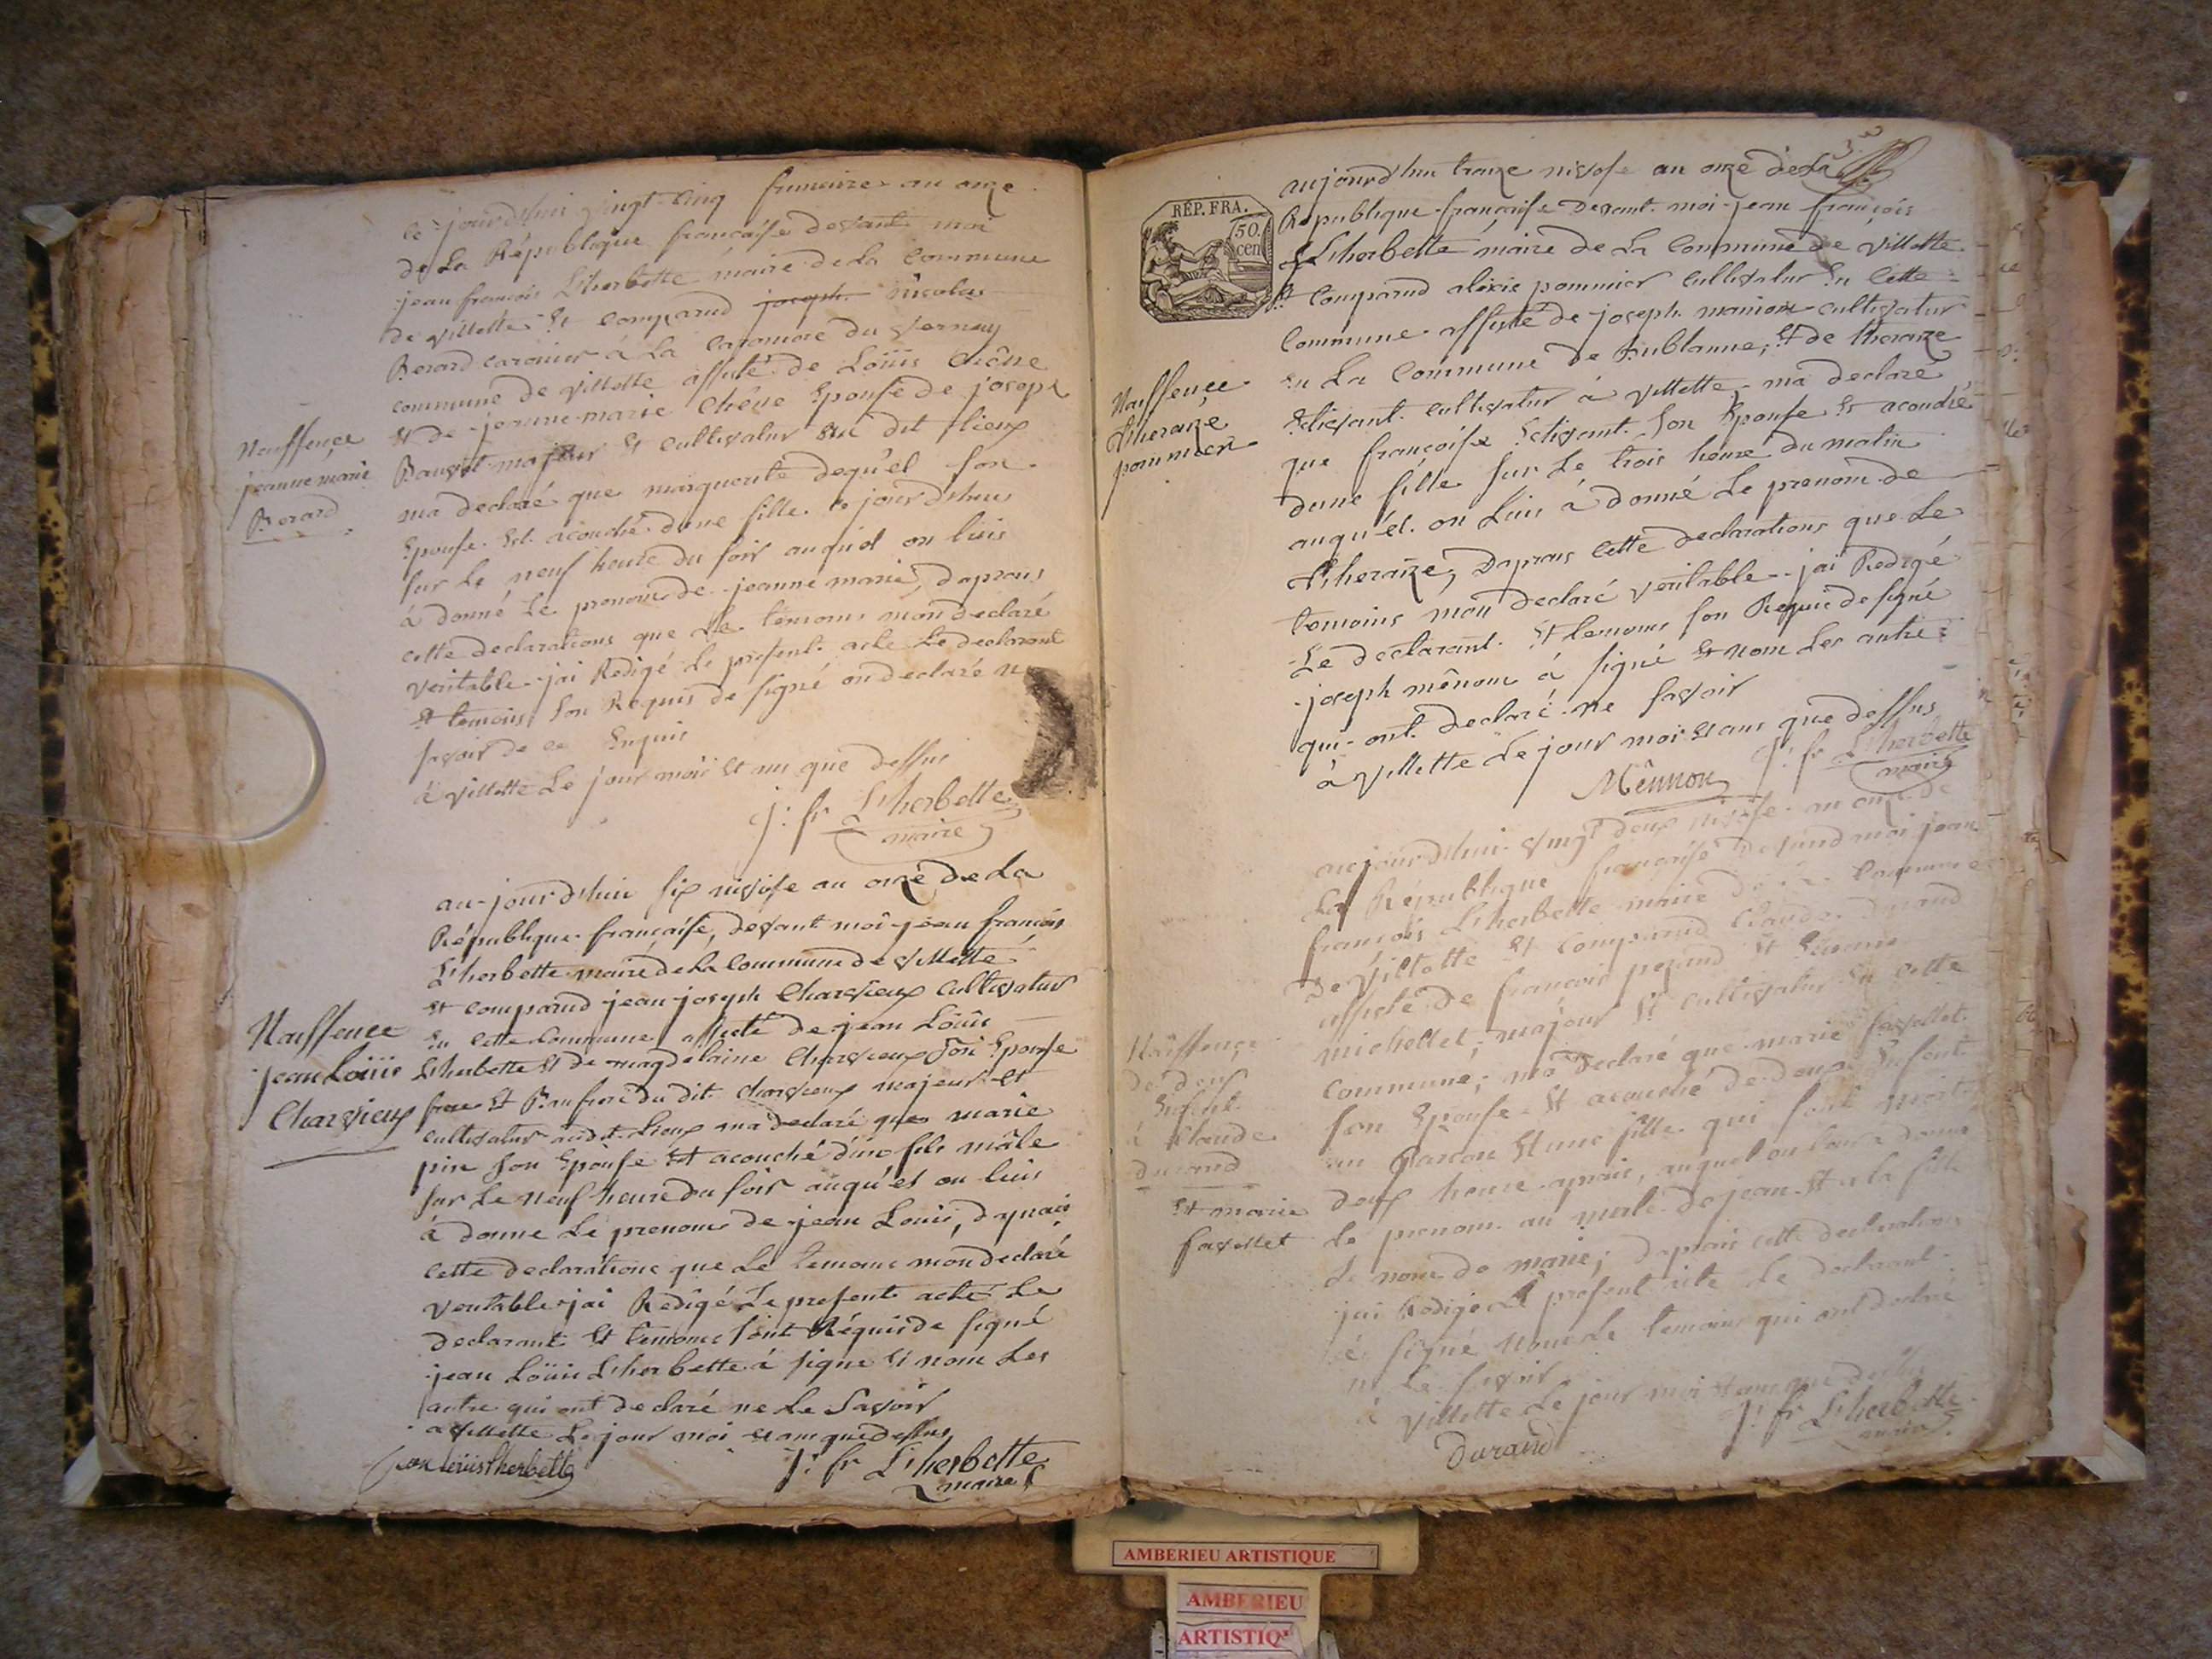 ce jourdhui vingt cinq frimaire an onze
de La République francaise devant moi
jean francois Lherbette maire de La Commune
de villette Et comparud joseph Nicolas
Berard caronier à La Caroniore du Vernay
commune de villette assisté de Loüis chêne
Et de jeanne marie Chêne Epouse de joseph
majeur Et cultivatur au dit lieux
Nauffençe
jeanne marie
Berard
ma declaré que marguerite dequ'el son
Epouse Est acouchè dune fille ce jourdhui
sur Le neuf heure du soir auquel on luis
à donné Le prenom de jeanne marie, daprais
cette declarations que Le temoins mon declaré
veritable jai Redigé Le present acte Le declarant
Et temoins son Requis de signé on declaré ne
savoir de ce Enquis
à villette Le jour mois Et an que dessus
j: fr Lherbette
maire
au jourdhui six nivose an onze de La
République francaise, devant moi jean francois
Lherbette maire de La Commune de villette
Et comparud jean joseph Charvieux Cultivatur
En cette Commune assisté de jean Loüis
Lherbette Et de magdelaine Charvieux son Epouse
Nauffence
jean Loüis
Charvieux
frere Et Baufrere du dit Charvieux majeur Et
cultivatur audit Lieux ma declaré que marie
pin son Epouse Est acouché d'un fils mâle
sur Le neuf heure du soir auqu'el on luis
à donne Le prenom de jean Louis, daprais
cette declarations que Le temoins mon declaré
veritable jai Redigé Le present acte Le
declarant Et temoins sont Réquis de signé
jean Loüis Lherbette à signe Et nom Les
autre qui ont declaré ne Le Savoir
a villette Le jour moi Et an que dessus
jean loüis lherbette
j: fr Lherbette
maire
3e
REP. FRA.
50.
cen
aujourdhui traize nivose an onze de La
République francaise devant moi jean francois
Lherbette maire de La Commune de villette
Et Comparud alexis pommier Cultivatur En Cette
Commune assisté de joseph manion cultivatur
En La Commune de Bublanne, Et de theraize
Nauffençe
theraize
pommier
Edivant cultivatur à villette, ma declaré
que françoise Edivant son Epouse Est acouché
dune fille sur Le trois heure du matin
auqu'el on Luis à donné Le prenom de
theraize, daprais Cette declarations que Le
temoins mon declaré veritable jai Redigé
Le declarant Et temoins son Requis de signé
joseph mênom à signé Et nom Les autre
qui ont declaré ne savoir
à villette Le jour moi Et an que dessus
Mênnon
j: fr Lherbette
maire
aujourdhui vingt deux nivose an onze de
La République francaise devand moi jean
francois Lherbette maire de La Commune
de villette Et Comparud Claude durand
assisté de francois perand Et
michellet, majour Et Cultivatur En Cette
Nauffençe
de deux
Enfent
à Claude
durand
Et marie
favellet
Commune, ma declaré que marie favellet
son Epouse Est acouché de deux Enfent
un Garcon Et une fille qui sont mort
deux heure aprais, auquel on leur à donné
Le prenom au male de jean Et a la fille
Le nom de marie; daprais cette declarations
jai Redigé Le present acte Le declarant
à signé nom Le temoins qui ont declaré
ne Le savoir
à villette Le jour moi Et an que dessus
durand
j: fr Lherbette
maire
AMBERIEU ARTISTIQUE
AMBERIEU
ARTISTIQ